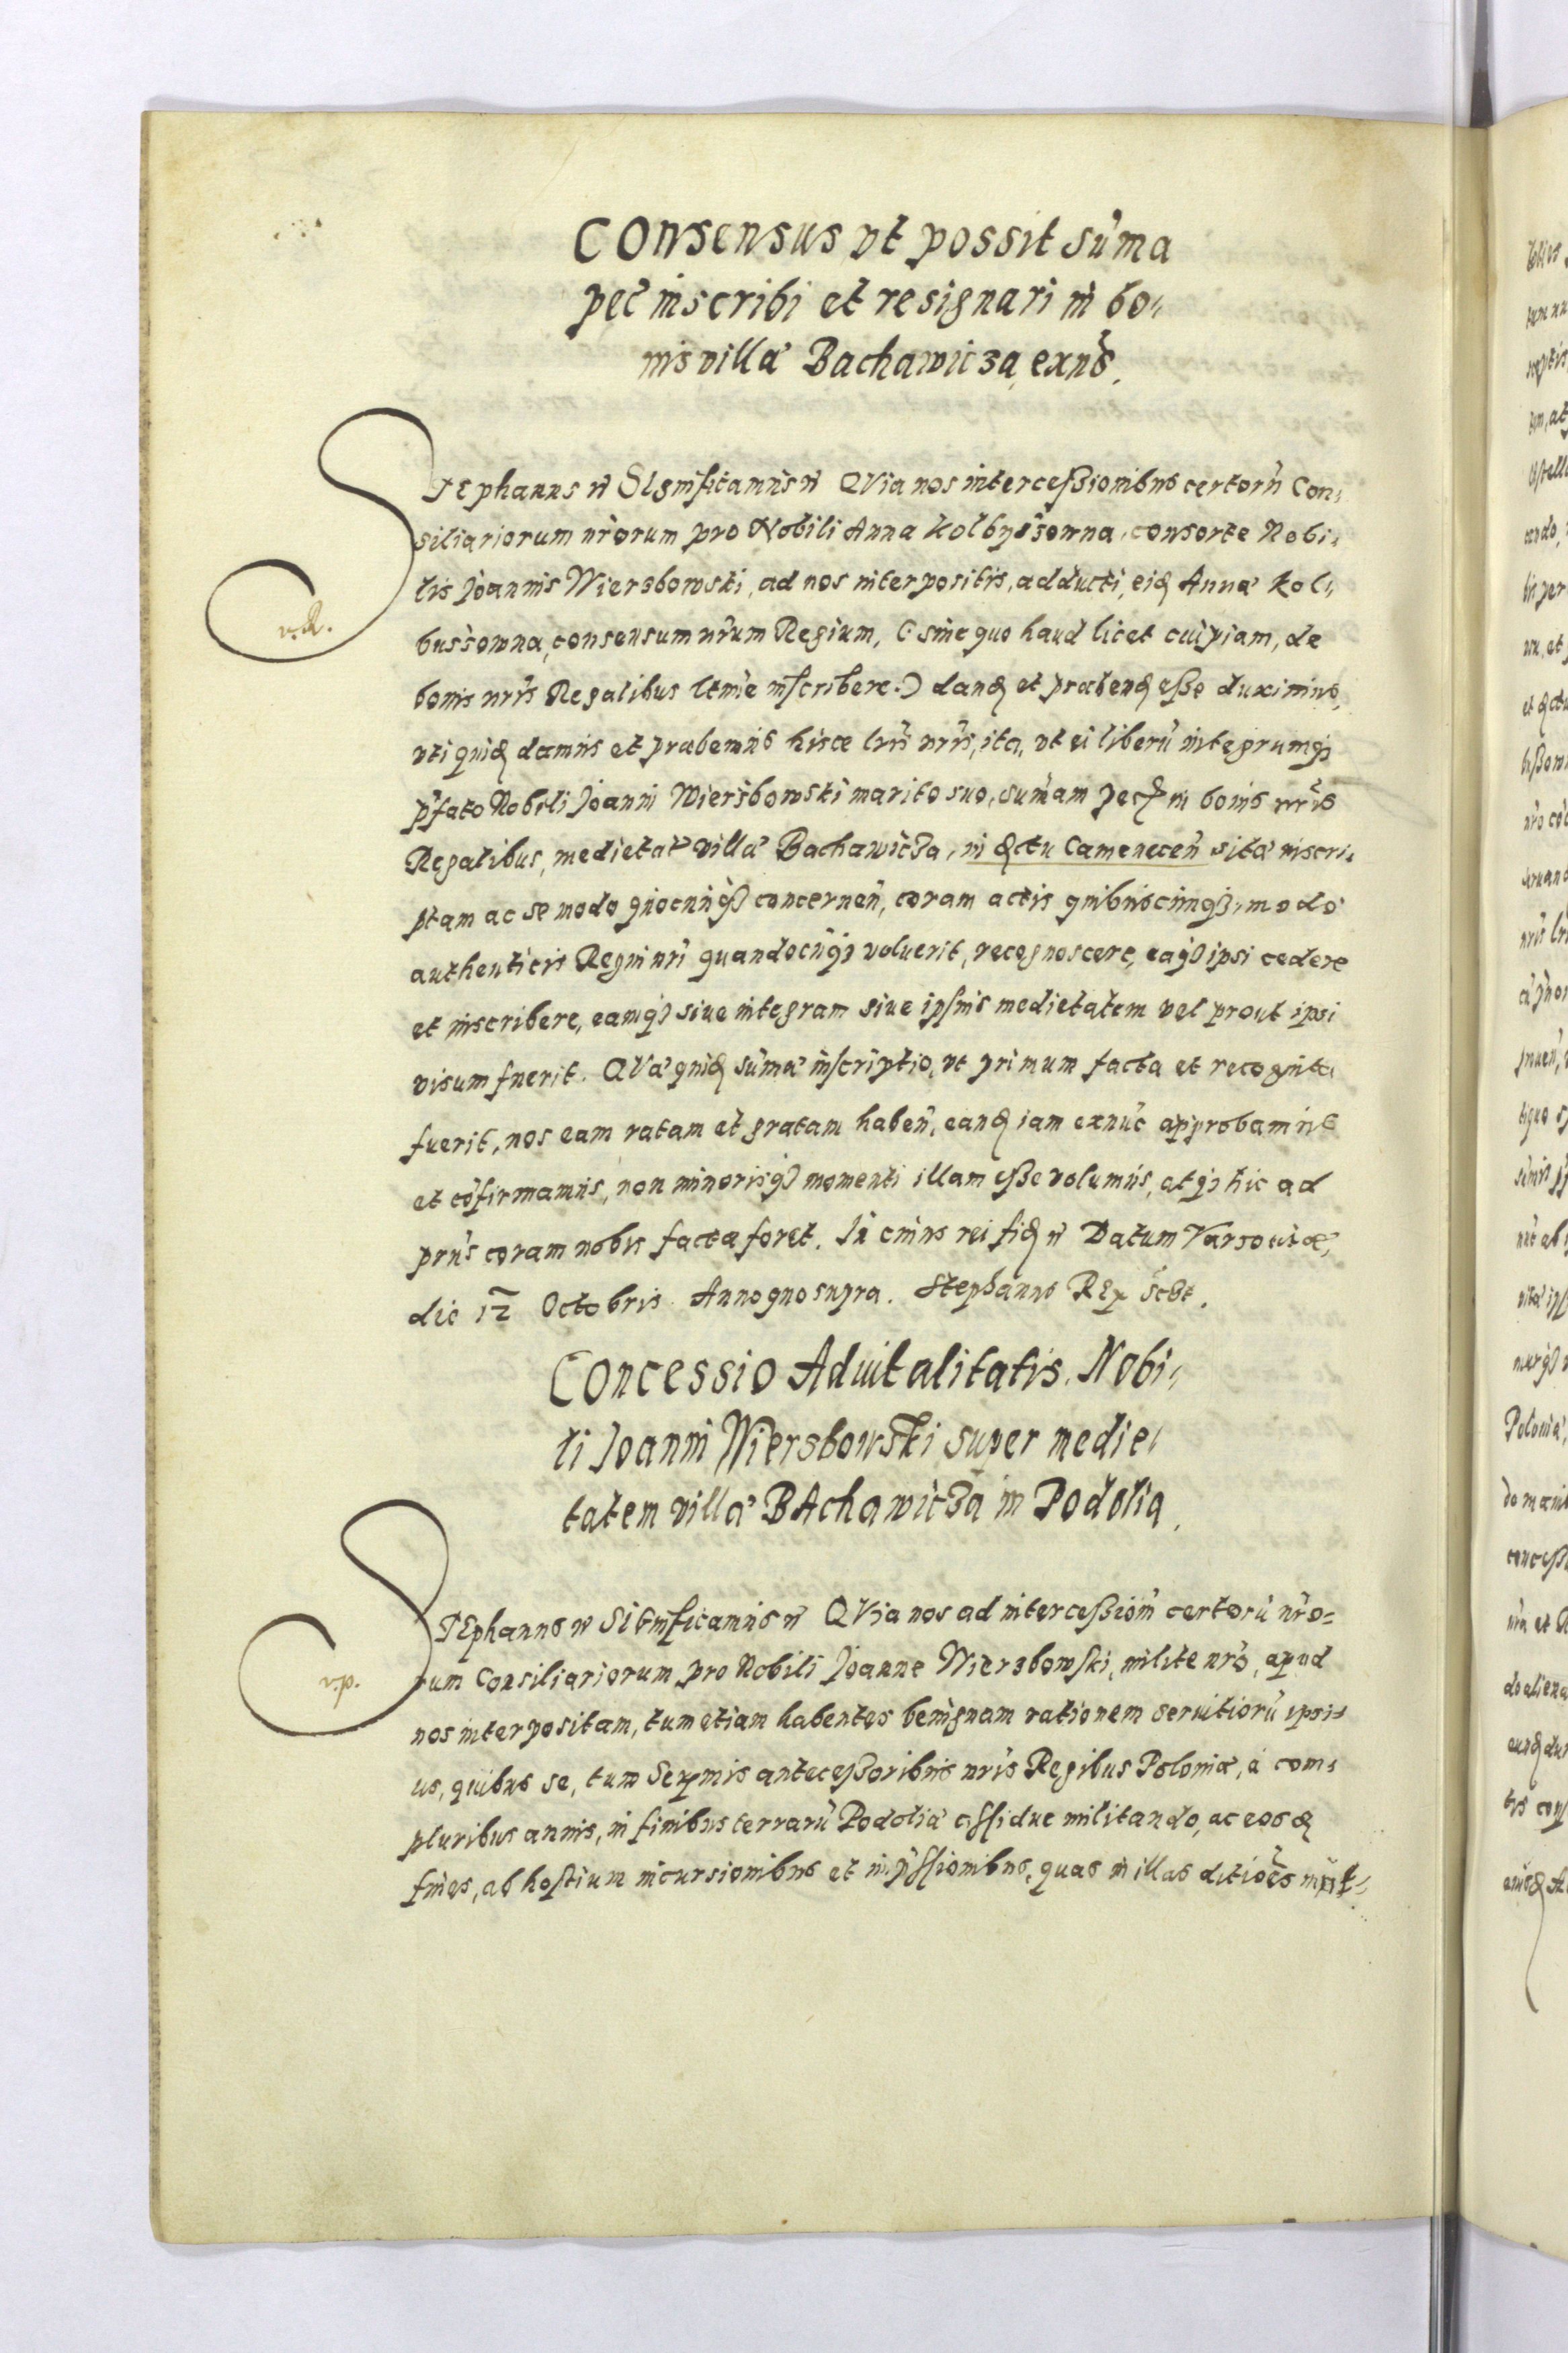 Consensus vt possit sum̃a
pec̃ inscribi et resignari in bo,
nis villæ Bachawicza, exnc̃.
STephanus etc̃ SIgnificamus etc̃ QVia nos intercessionibus certorũ Con,
siliariorum nrõrum pro Nobili Anna Kolbyszowna, consorte Nobi,
lis Joannis Wierzbowski, ad nos interpositis, adducti, eid Annæ Kol,
buszowna, consensum nrũm Regium, (sine quo haud licet cuipiam, de
bonis nrĩs Regalibus ltmẽ inscribere.) dand et præbend esse duximus,
vti quid damus et præbemus hisce lrĩs nrĩs, ita, vt ei liberũ integrumq3
p̃fato Nobili Joanni Wierzbowski marito suo, sum̃am pec in bonis nrĩs
Regalibus, medietat villæ Bachawicza, in dctu Camenecen̄ sitæ inscri,
ptam ac se modo quocunq3 concernen̄, coram actis quibuscunq3, modo
authenticis Regni nrĩ quandocũq3 voluerit, recognoscere, eaq3 ipsi cedere
et inscribere, eamq3 siue integram siue ipsius medietatem vel prout ipsi
visum fuerit. QVæ quid sum̃æ inscriptio, vt primum facta et recognita
fuerit, nos eam ratam et gratam haben̄, eand iam exnũc approbamus
et cõfirmamus, non minorisq3 momenti illam esse volumus, atq3 hic ad
prñs coram nobis facta foret. In cuius rei fid etc̃ Datum Varsouiæ,
die 12 Octobris Anno quo supra. Stephanus REx sc̃bt.
Concessio Aduitalitatis, Nobi,
li Joanni Wierzbowski super medie,
tatem villæ BAchawicza in Podolia.
STEphanus etc̃ SIGnificamus etc̃ QVia nos ad intercessiõm certorũ nrõ=
rum Consiliariorum pro Nobili Joanne Wierzbowski, milite nrõ, apud
nos interpositam, tum etiam habentes benignam rationem seruitiorũ ipsi=
us, quibus se, tum Serẽmis antecessoribus nrĩs Regibus Poloniæ, à com,
pluribus annis, in finibus terrarũ Podoliæ assidue militando, ac eosd
fines, ab hostium incursionibus et imp̃ssionibus, quas in illas ditiões